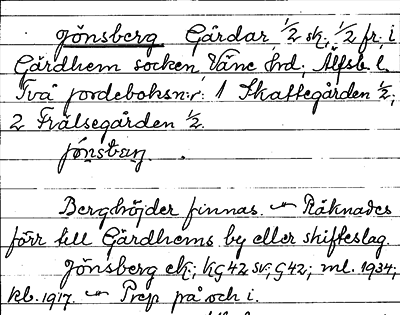 Jönsberg Gårdar 1/2 sk; 1/2 fr; i
Gärdhem socken, Väne hrd; Älfsb. l.
Två jordebohsn:r: 1 Skattegården 1/2;
2 Frälsegården 1/2.
Bergshöjder finnas. — Räknades
förr till Gärdhems by eller skifteslag.
Jönsberg ek; KG42 sv; G42; ml. 1934;
kb. 1917. — Prep på och i.